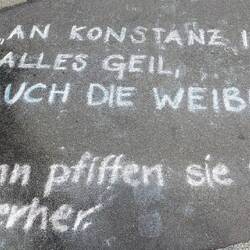 „AN KONSTANZ I
ALLES GEIL,
UCH DIE WEIB
nn pfiffen sie
erher.